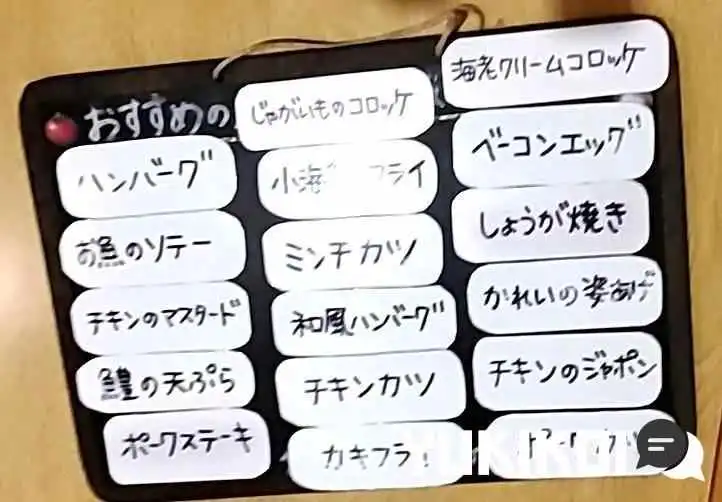 おすすめの
ハンバーグ
お魚のソテー
チキンのマスタード
鱧の天ぷら
ポークステーキ
じゃがいものコロッケ
小海 フライ
ミンチカツ
和風ハンバーグ
チキンカツ
カキフラ
海老クリームコロッケ
ベーコンエッグ
しょうが焼き
かれいの姿あげ
チキンのジャポン
YUKIKOI